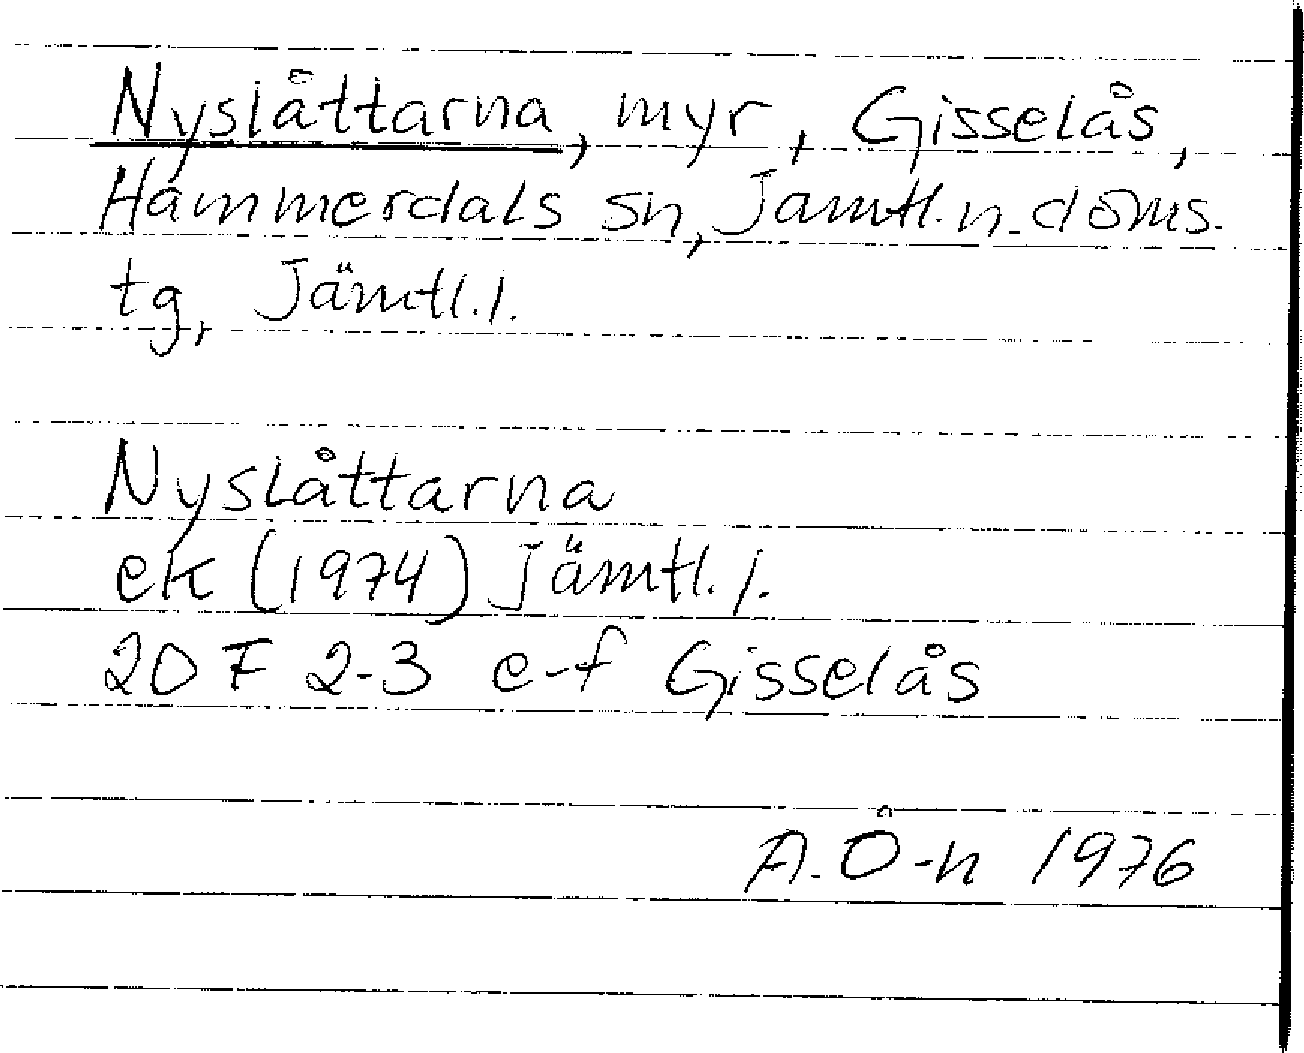 Nyslåttarna, myr, Gisselås,
Hammerdals sn, Jämtl. n. doms-
tg, Jämtl. l.
Nyslåttarna
ek (1974) Jämtl. l.
20 F 2-3 e-f Gisselås
A. Ö-n 1976